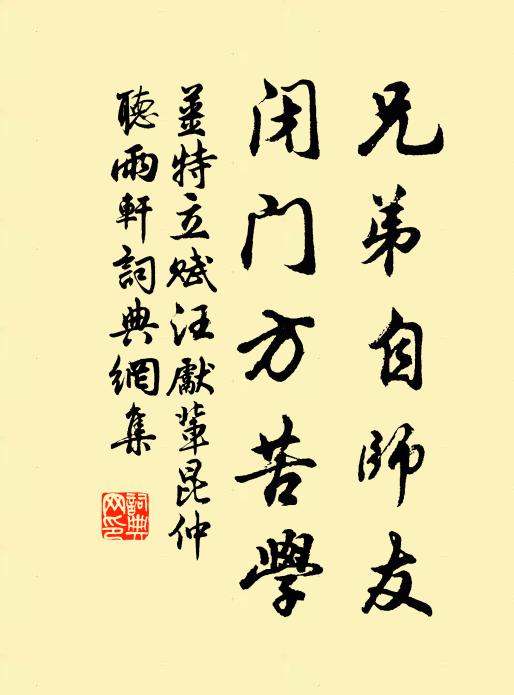 兄弟自師友
閉門方苦學
姜特立賦汪獻輩昆仲
聽雨軒詞典網集
詞典網印